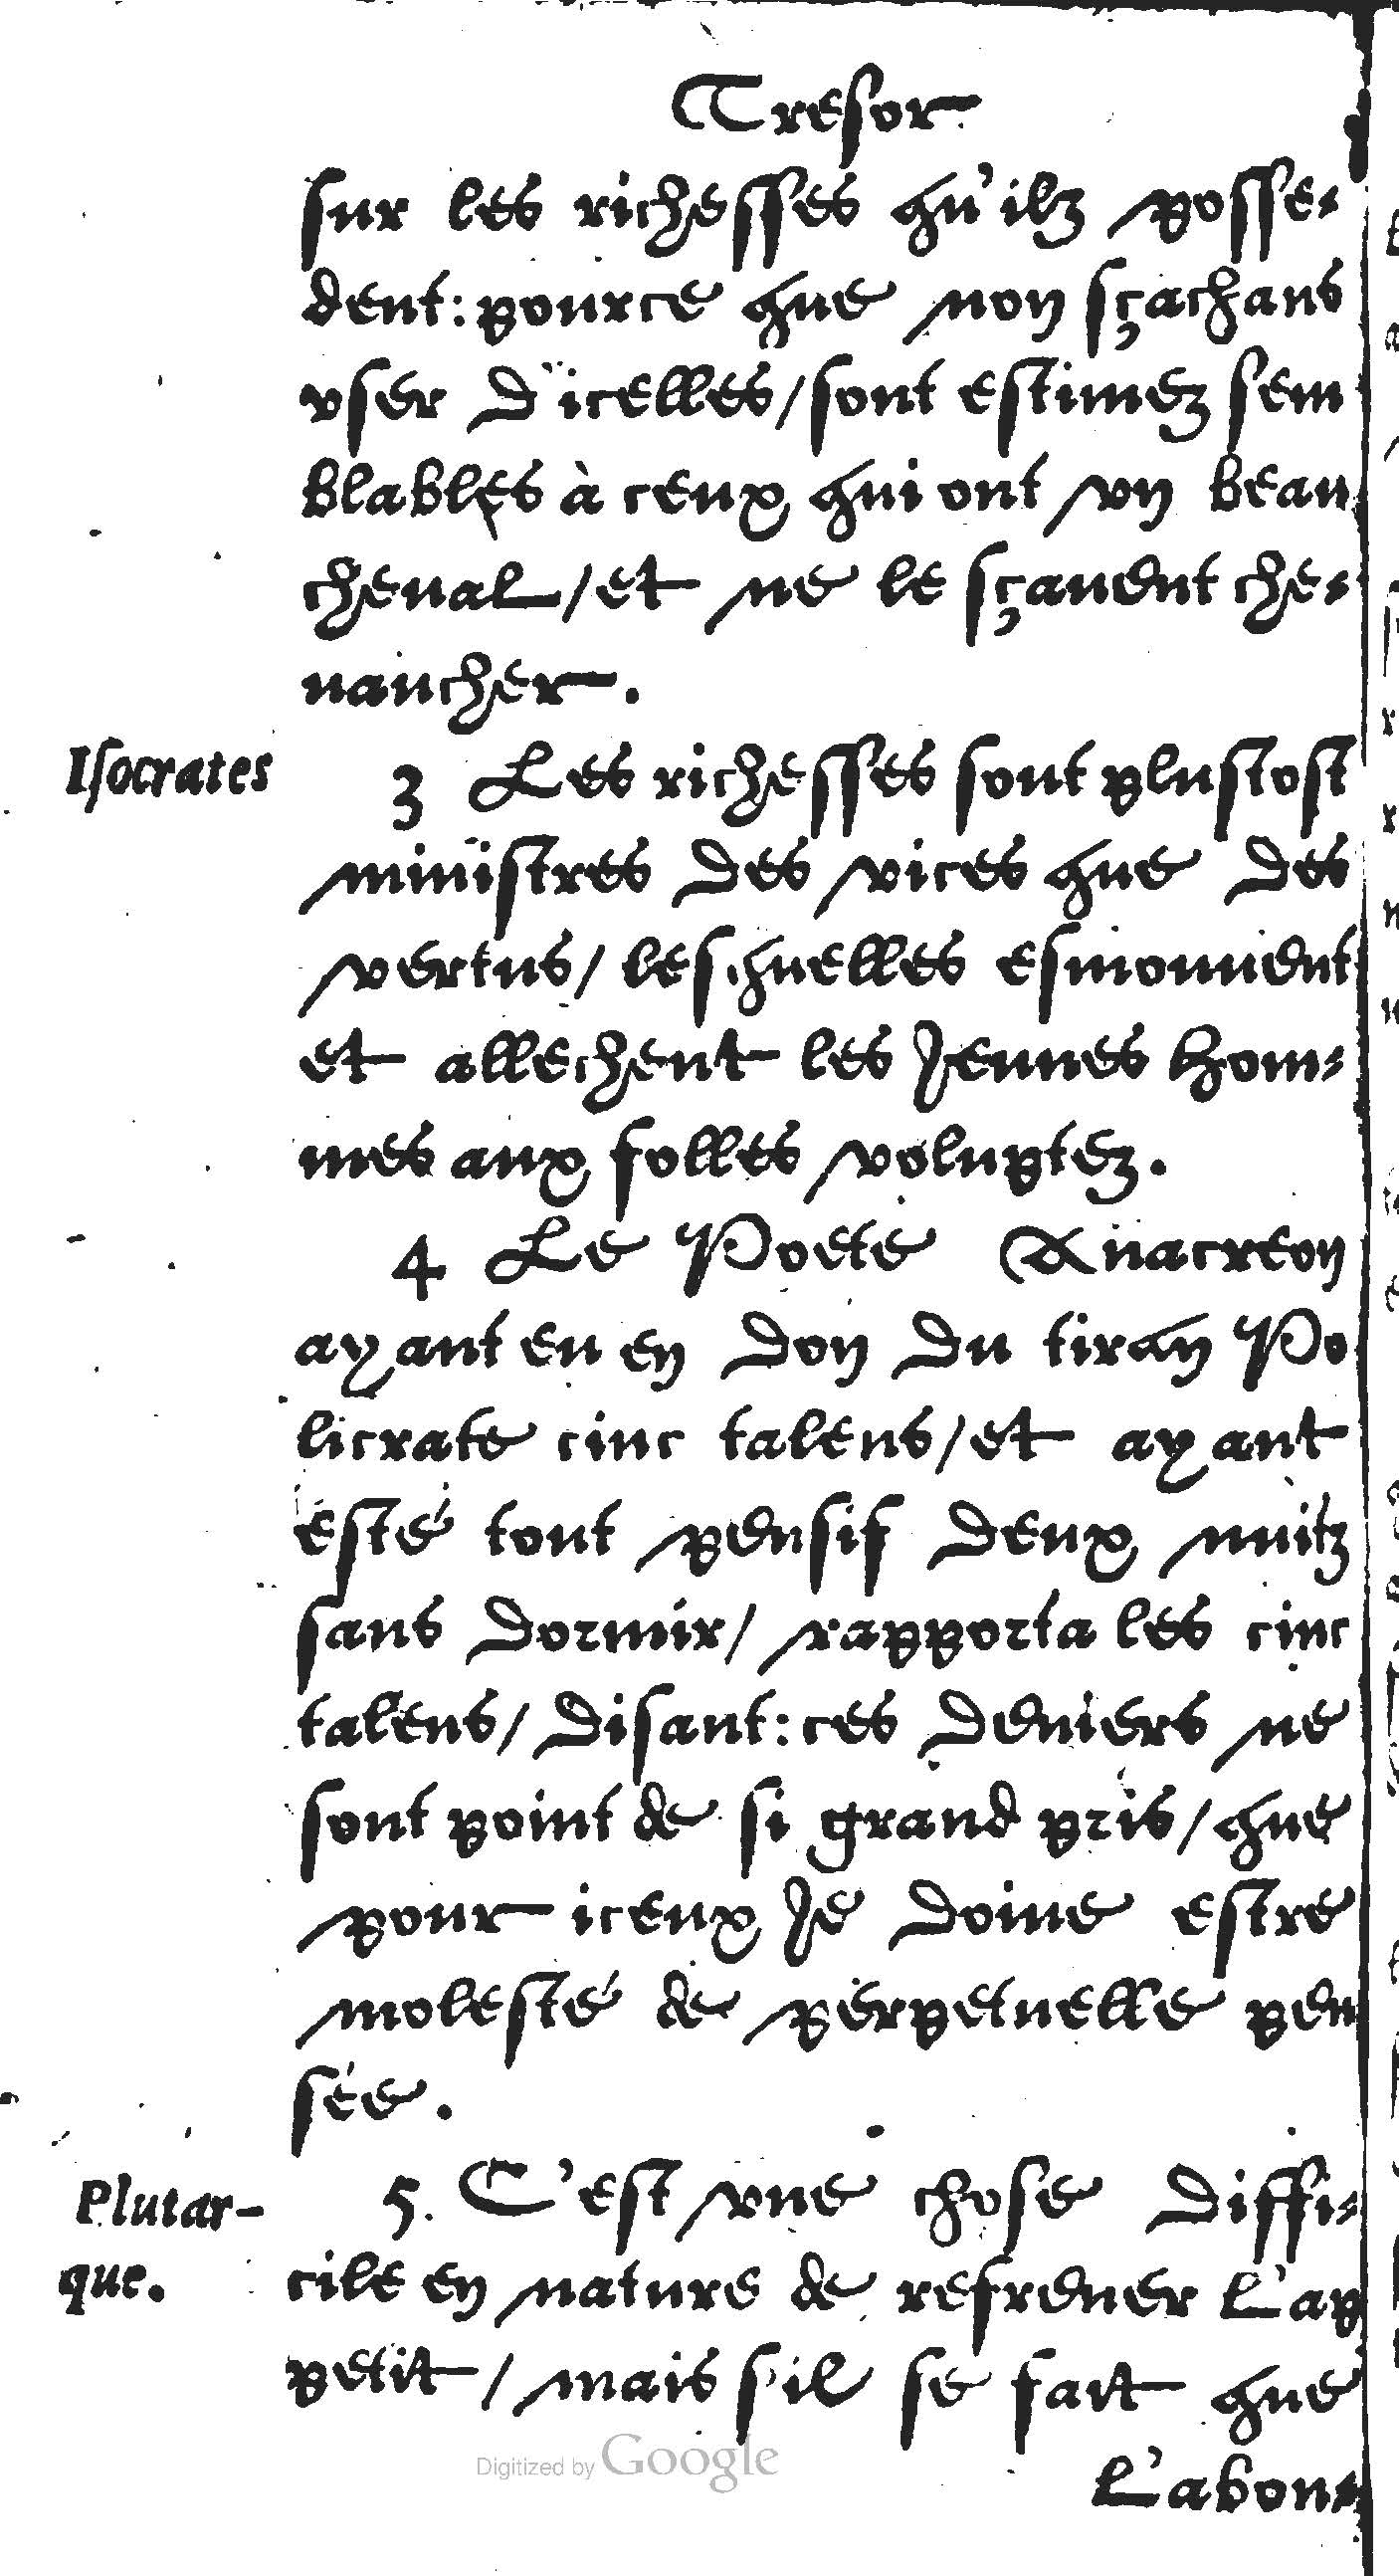 Tresor
sur les richesses qu'ilz posse-
dent: pource que non sçachans
vser d'icelles/sont estimez sem
blables à ceux qui ont vn beau
cheual/et ne le sçauent che-
uaucher.
Isocrates
3 Les richesses sont plustost
ministres des vices que des
vertus/ lesquelles esmouuent
et allechent les Jeunes hom-
mes aux folles voluptez.
4 Le Poete Anacreon
ayant eu en don du tiran Po
licrate cinc talens/et ayant
esté tout pensif deux nuitz
sans dormir/ rapporta les cinc
talens/ disant: ces deniers ne
sont point de si grand pris/que
pour iceux Je doiue estre
molesté de perpetuelle pen
sée.
Plutar-
que.
5. C'est vne chose diffi-
cile en nature de refrener l'ap
petit/ mais s'il se fait que
l'abon-
Digitized by Google